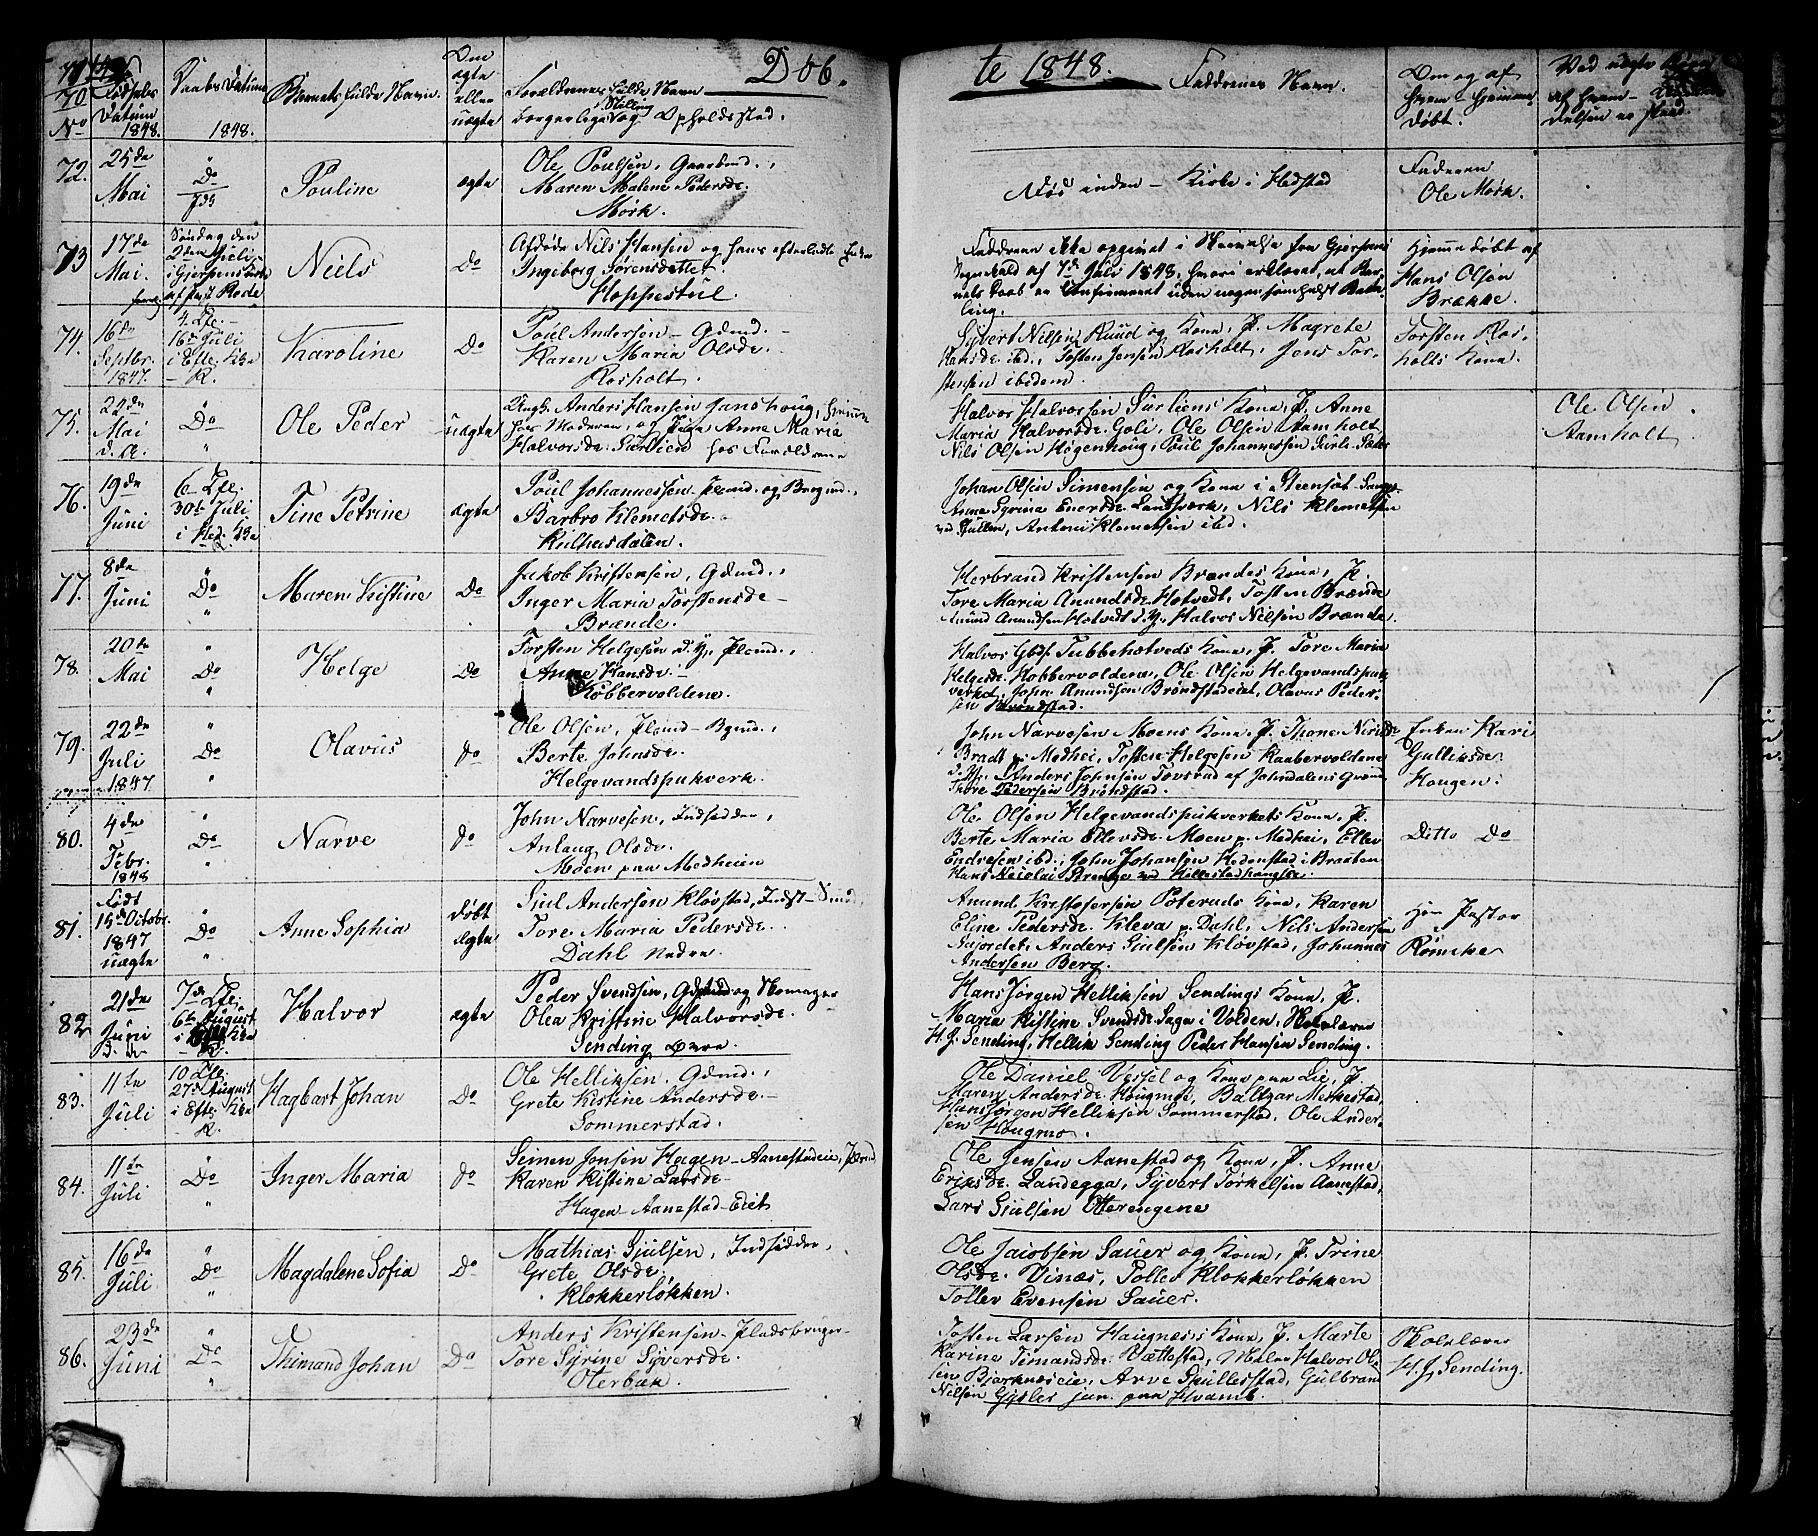 Døb-
te 1848.
No
Fødsels
Datum
1848.
Daabs Datum
1848.
Barnets fulde Navn.
Om
ægte
eller
uægte
Forældrenes fulde Navn
Stilling
borgerlige og Opholdssted.
Faddrenes Navn.
Om og af
hvem Hjemme
døbt.
Ved uægte Børn
af hvem
delsen er skeed.
72.
25de
Mai
Do
Pouline
ægte
Ole Poulsen, Gaardmd.,
Maren Malene Pedersdr.
Mørk.
Kirke i Hedstad
Faderen
Ole Mørk.
73
17de
Mai.
Søndag den
2den Juli
i Gjerpens Kirke
af Past Rode
Niels
Do
Afdøde Nils Hansen og hans efterladte Enke
Ingeborg Sørensdatter.
Hoppestul.
Faddrene ikke opgivet i Skrivelse fra Gjerpens
Sognekald af 7de Juli 1848, hvori erklæret, at Bar-
nets Daab er Confirmeret uden nogen somhelst Beta-
ling.
Hjemmedøbt af
Hans Olsen
Brække.
74.
16de
Septbr.
1847.
4. Tfe. -
16de Juli
i Efte. Kke
- R.
Karoline
Do
Poul Andersen - Gdmd. -
Karen Maria Olsdr. -
Rosholt.
Syvert Nilsen Ruud og Kone, P. Magrete
Hansdr. ibd., Tosten Jensen Rosholt, Jens Tor-
stensen ibidem.
Torsten Ros-
holts Kone.
75.
22de
Mai
d. A.
Do
Ole Peder
uægte
Ungk. Anders Hansen Janshoug, hjemme
hos Moderen, og Pige Anne Maria
Halvorsdr. Surtien hos Forældrene
Halvor Halvorsen Surliens Kone, P. Anne
Maria Halvorsdr. Goli, Ole Olsen Aamholt
Nils Olsen Høgenhoug, Poul Johannessen Surli-Sæter
Ole Olsen
Aamholt.
76.
19de
Juni
6te Tfe.
30te Juli
i Hed. Kke
R.
Tine Petrine
ægte
Poul Johannessen Plmd. og Bergmd.,
Barbro Klemetsdr. -
Kulhusdalen.
Johan Olsen Simensen og Kone i Steensæt-Sauger
Anne Gyrina Enersdr. Landsværk, Nils Klemetsen
ved Hullen, Antoni Klemetsen ibd.
77.
8de
Juni
Do
Maren Kistine
Do
Jakob Kristensen, Gdmd.,
Inger Maria Torstensdr. -
Brænde.
Herbrand Kristensen Brændes Kone, P.
Tore Maria Anundsdr. Hotvedt, Tosten Brænde
Anund Anundsen Hotvedt d. Y., Halvor Nilsen Brænde
78.
20de
Mai
Do
Helge
Do
Torsten Helgesen d. Y., Plmd.,
Anne Hansdr. -
Kobbervoldene.
Halvor Gbds. Tubbehætveds Kone, P. Tore Maria
Helgesdr. Kobbervoldene, Ole Olsen Helgevandspuk-
verket, John Anundsen Brøndstadeiet, Olavus Peder-
sen Brøndstad.
79.
22de
Juli
1847
Do
Olavus
Do
Ole Olsen, Plmd - Bgmd.,
Berte Johnsdr. -
Helgevandspukverk.
John Narvesen Moens Kone, P. Thone Nirisdr
Bradt p. Medhei, Tosten Helgesen Kaabervoldene
d. Y., Anders Johnsen Tovsrud af Johndalens Grube
Thore Pedersen Brøndstad.
Enken Kari
Gulliksdr.
Hougen.
80.
4de
Febr.
1848
Do
Narve
Do
John Narvesen, Indsidder,
Anlaug Olsdr. -
Moen paa Medheien
Ole Olsen Helgevandspukverkets Kone, P.
Berte Maria Ellevsdr. Moen p. Medhei, Ellev
Endresen ibd., John Johansen Hedenstad i Braaten
Hans Nicolai Strenge ved Hillestadhougene.
Ditto Do
81.
Født
15de Octobr.
1847
uægte
Do
Anne Sophia
døbt
ægte
Siul Andersen Kløvstad, Indst - Smd,
Tore Maria Pedersdr.
Dahl Nedre
Anund Kristofersen Poteruds Kone, Karen
Eline Pedersdr. Kleva p. Dahl, Nils Andersen
Aajordet, Anders Siulsen Kløvstad, Johannes
Andersen Berg.
Hr. Pastor
Rømcke
82
21de
Juni
7de Tfe.
6te August
i Kke
- R.
Halvor
ægte
Peder Svendsen, Gdmd og Skomager
Olea Kristine Halvorsdr.
Sending Øvre
Hans Jørgen Helliksen Sendings Kone, P.
Maria Kistine Svendsdr. Saga i Volden, Skolelærer
H. J. Sending, Hellik Sending Peder Hansen Sending.
83.
11te
Juli
10 Tfe.
27de August
i Efte. Kke
- R.
Hagbart Johan
Do
Ole Helliksen, Gdmd.,
Grete Kistine Andersdr. -
Sommerstad.
Ole Daniel Vessel og Kone paa Lie, P.
Maren Andersdr. Hougmoe, Baltzar Mærkestad,
Hans Jørgen Helliksen Sommerstad, Ole Ander-
sen Hougmo.
84.
11te
Juli
Do
Inger Maria
Do
Simen Jonsen Hagen - Aanestadeie, Plmd
Karen Kistine Larsdr. -
Hagen - Aanestad-Eiet
Ole Jensen Aanestad og Kone, P. Anne
Eriksdr. Landegga, Syvert Torkelsen Aanestad,
Lars Siulsen Otterengene
85.
16de
Juli
Do
Magdalene Sofia
Do
Mathias Siulsen, Indsidder,
Grete Olsdr.
Klokkerløkken.
Ole Jacobsen Sauer og Kone, P. Trine
Olsdr. Vinæs, Tollev Klokkerløkken
Tollev Evensen Sauer.
86.
23de
Juni
Do
Thimand Johan
Do
Anders Kristensen - Pladsbruger -
Tore Syrine Syversdr.
Olerbak.
Tosten Larsen Haugnæs's Kone, P. Marte
Karine Timandsdr. Vættestad, Maler Halvor Ol-
sen Bjørknæseie, Arve Skullestad, Gulbrand
Nilsen Gisler jun. paa Hvamb.
Skolelærer
H. J. Sending.